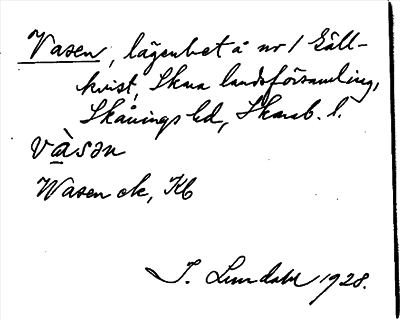 Vasen, lägenhet å nr 1 Gäll-
kvist, Skara landsförsamling,
Skånings hd, Skarab. l.
vàsən
Wasen ek, Kb
J. Lundahl 1928.